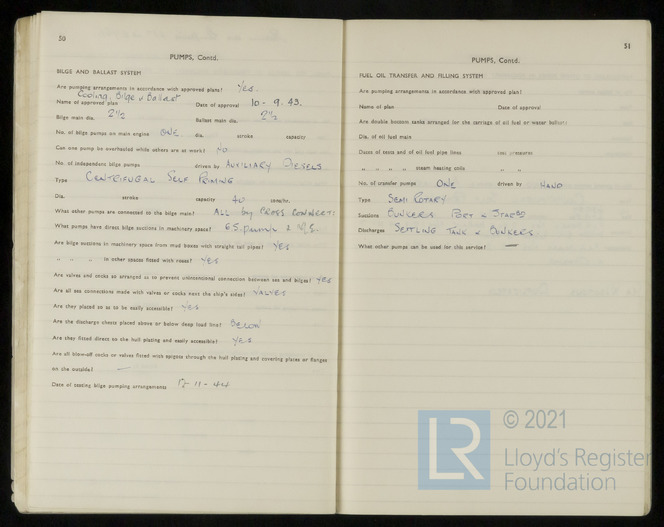 50
PUMPS, Contd.
BILGE AND BALLAST SYSTEM
Are pumping arrangements in accordance with approved plans? Yes.
Cooling, Bilge & Ballast
Name of approved plan Date of approval 10-9.43.
Bilge main dia. 2½ Ballast main dia. 2½
No. of bilge pumps on main engine ONE dia. stroke capacity
Can one pump be overhauled while others are at work? NO
No. of independent bilge pumps driven by AUXILIARY DIESELS
Type CENTRIFUGAL SELF PRIMING
Dia. stroke capacity 40 tons/hr.
What other pumps are connected to the bilge main? ALL by CROSS CONNECT:
What pumps have direct bilge suctions in machinery space? G.S. pump &
Are bilge suctions in machinery space from mud boxes with straight tail pipes? YES
" " " in other spaces fitted with roses? YES
Are valves and cocks so arranged as to prevent unintentional connection between sea and bilges? YES
Are all sea connections made with valves or cocks next the ship's sides? VALVES
Are they placed so as to be easily accessible? YES
Are the discharge chests placed above or below deep load line? BELOW
Are they fitted direct to the hull plating and easily accessible? YES
Are all blow-off cocks or valves fitted with spigots through the hull plating and covering plates or flanges
on the outside? —
Date of testing bilge pumping arrangements 11-44
51
PUMPS, Contd.
FUEL OIL TRANSFER AND FILLING SYSTEM
Are pumping arrangements in accordance with approved plan?
Name of plan Date of approval
Are double bottom tanks arranged for the carriage of oil fuel or water ballast?
Dia. of oil fuel main
Dates of tests and of oil fuel pipe lines test pressures
" " " " steam heating coils " "
No. of transfer pumps ONE driven by HAND
Type SEMI ROTARY
Suctions BUNKERS PORT & STARBD
Discharges SETTLING TANK & BUNKERS
What other pumps can be used for this service? —
LR
© 2021
Lloyd's Register
Foundation